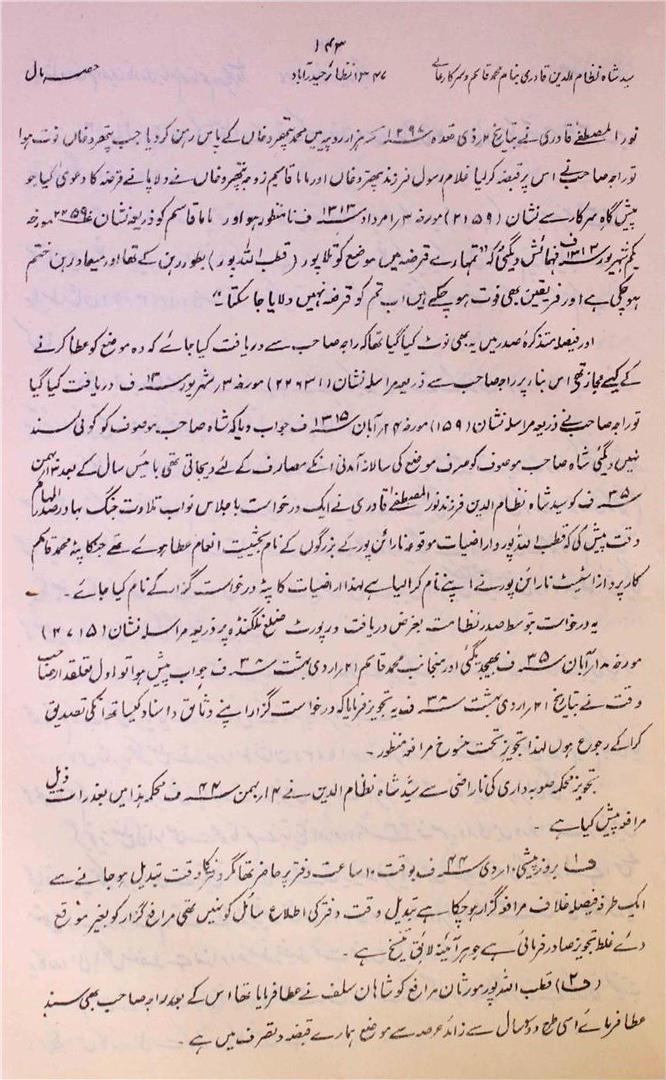 ۱۴۳
سید شاہ نظام الدین قادری بنام محمد قاسم و سرکار عالی ۱۳۴۷ نظائر حیدرآباد حصہ مال
نور المصطفےٰ قادری نے بتاریخ ۲ ذی قعدہ ۱۲۹۸ھ ہزار روپیہ میں محمد چھروخاں کے پاس رہن کر دیا جب چھروخاں فوت ہوا
تو راجہ صاحب نے اس پر قبضہ کر لیا غلام رسول فرزند چھروخاں اور ماما قاسیم زوجہ چھروخاں نے دلا پانے قرضہ کا دعویٰ کیا جو
پیش گاہ سرکار سے نشان (۲۱۵۹) مورخہ ۳ امرداد ۱۳۱۳ف نامنظور ہوا اور ماما قاسم کو ذریعہ نشان ۲۲۵۹ مورخہ
یکم شہریور ۱۳۱۳ف فہمائش دیگئی کہ "تمہارے قرضہ میں موضع کوتلاپور (قطب اللہ پور) بطور رہن کے تھا اور میعاد رہن ختم
ہو چکی ہے اور فریقین بھی فوت ہو چکے ہیں اب تم کو قرضہ نہیں دلایا جا سکتا"
اور فیصلہ متذکرۂ صدر میں یہ بھی نوٹ کیا گیا تھا کہ راجہ صاحب سے دریافت کیا جائے کہ وہ موضع کو عطا کرنے
کے کیسے مجاز تھی اس بناء پر راجہ صاحب سے ذریعہ مراسلہ نشان (۲۲۶۳۱) مورخہ ۳ شہریور ۱۳ف دریافت کیا گیا
تو راجہ صاحب نے ذریعہ مراسلہ نشان (۱۵۹) مورخہ ۲۴ آبان ۱۳۱۵ف جواب دیا کہ شاہ صاحب موصوف کو کوئی سند
نہیں دیگئی شاہ صاحب موصوف کو صرف موضع کی سالانہ آمدنی انکے مصارف کے لئے دیجاتی تھی بائیس سال کے بعد ۳ بہمن
۳۵ف کو سید شاہ نظام الدین فرزند نور المصطفےٰ قادری نے ایک درخواست با جلاس نواب تلاوت جنگ بہادر صدر المہام
وقت پیش کی کہ قطب اللہ پور و اراضیات موقوعہ نارائن پور کے بزرگوں کے نام بحیثیت انعام عطا ہوئے تھے جنکا پٹہ محمد قاسم
کارپرداز اسٹیٹ نارائن پور نے اپنے نام کرا لیا ہے لہذا اراضیات کا پٹہ درخواست گزار کے نام کیا جائے۔
یہ درخواست بتوسط صدر نظامت بغرض دریافت و رپورٹ ضلع نلگنڈہ پر ذریعہ مراسلہ نشان (۳۷۱۵)
مورخہ ۱۸ آبان ۳۵ف بھیجدیگئی اور منجانب محمد قاسم ۲۱ اردی بہشت ۳۸ف جواب پیش ہوا تو اول تعلقدار صاحب
وقت نے بتاریخ ۲۱ اردی بہشت ۳۸ف یہ تجویز فرمایا کہ درخواست گزار اپنے وثائق و اسناد کیساتھ انکی تصدیق
کرا کے رجوع ہوں لہذا تجویز تحت منسوخ مرافعہ منظور۔
تجویز محکمہ صوبہ داری کی ناراضی سے سیّد شاہ نظام الدین نے ۱۴ بہمن ۴۴ف محکمہ ہذا میں بعذرات ذیل
مرافعہ پیش کیا ہے
(۱) بروز پیشی ۱۰ اردی ۴۴ف بوقت ۱۰ ساعت دفتر پر حاضر تھا مگر دفتر کا وقت تبدیل ہو جانے سے
ایک طرفہ فیصلہ خلاف مرافعہ گزار ہو چکا ہے تبدیل وقت دفتر کی اطلاع سائل کو نہیں تھی مرافع گزار کو بغیر موقع
دئے غلط تجویز صادر فرمائی ہے جو ہر آئینہ لائق تنسیخ ہے۔
(۲) قطب اللہ پور مورثان مرافع کو شاہان سلف نے عطا فرمایا تھا اس کے بعد راجہ صاحب بھی سند
عطا فرمائے اسی طرح دو سال سے زائد عرصہ سے موضع ہمارے قبضہ و تصرف میں ہے۔